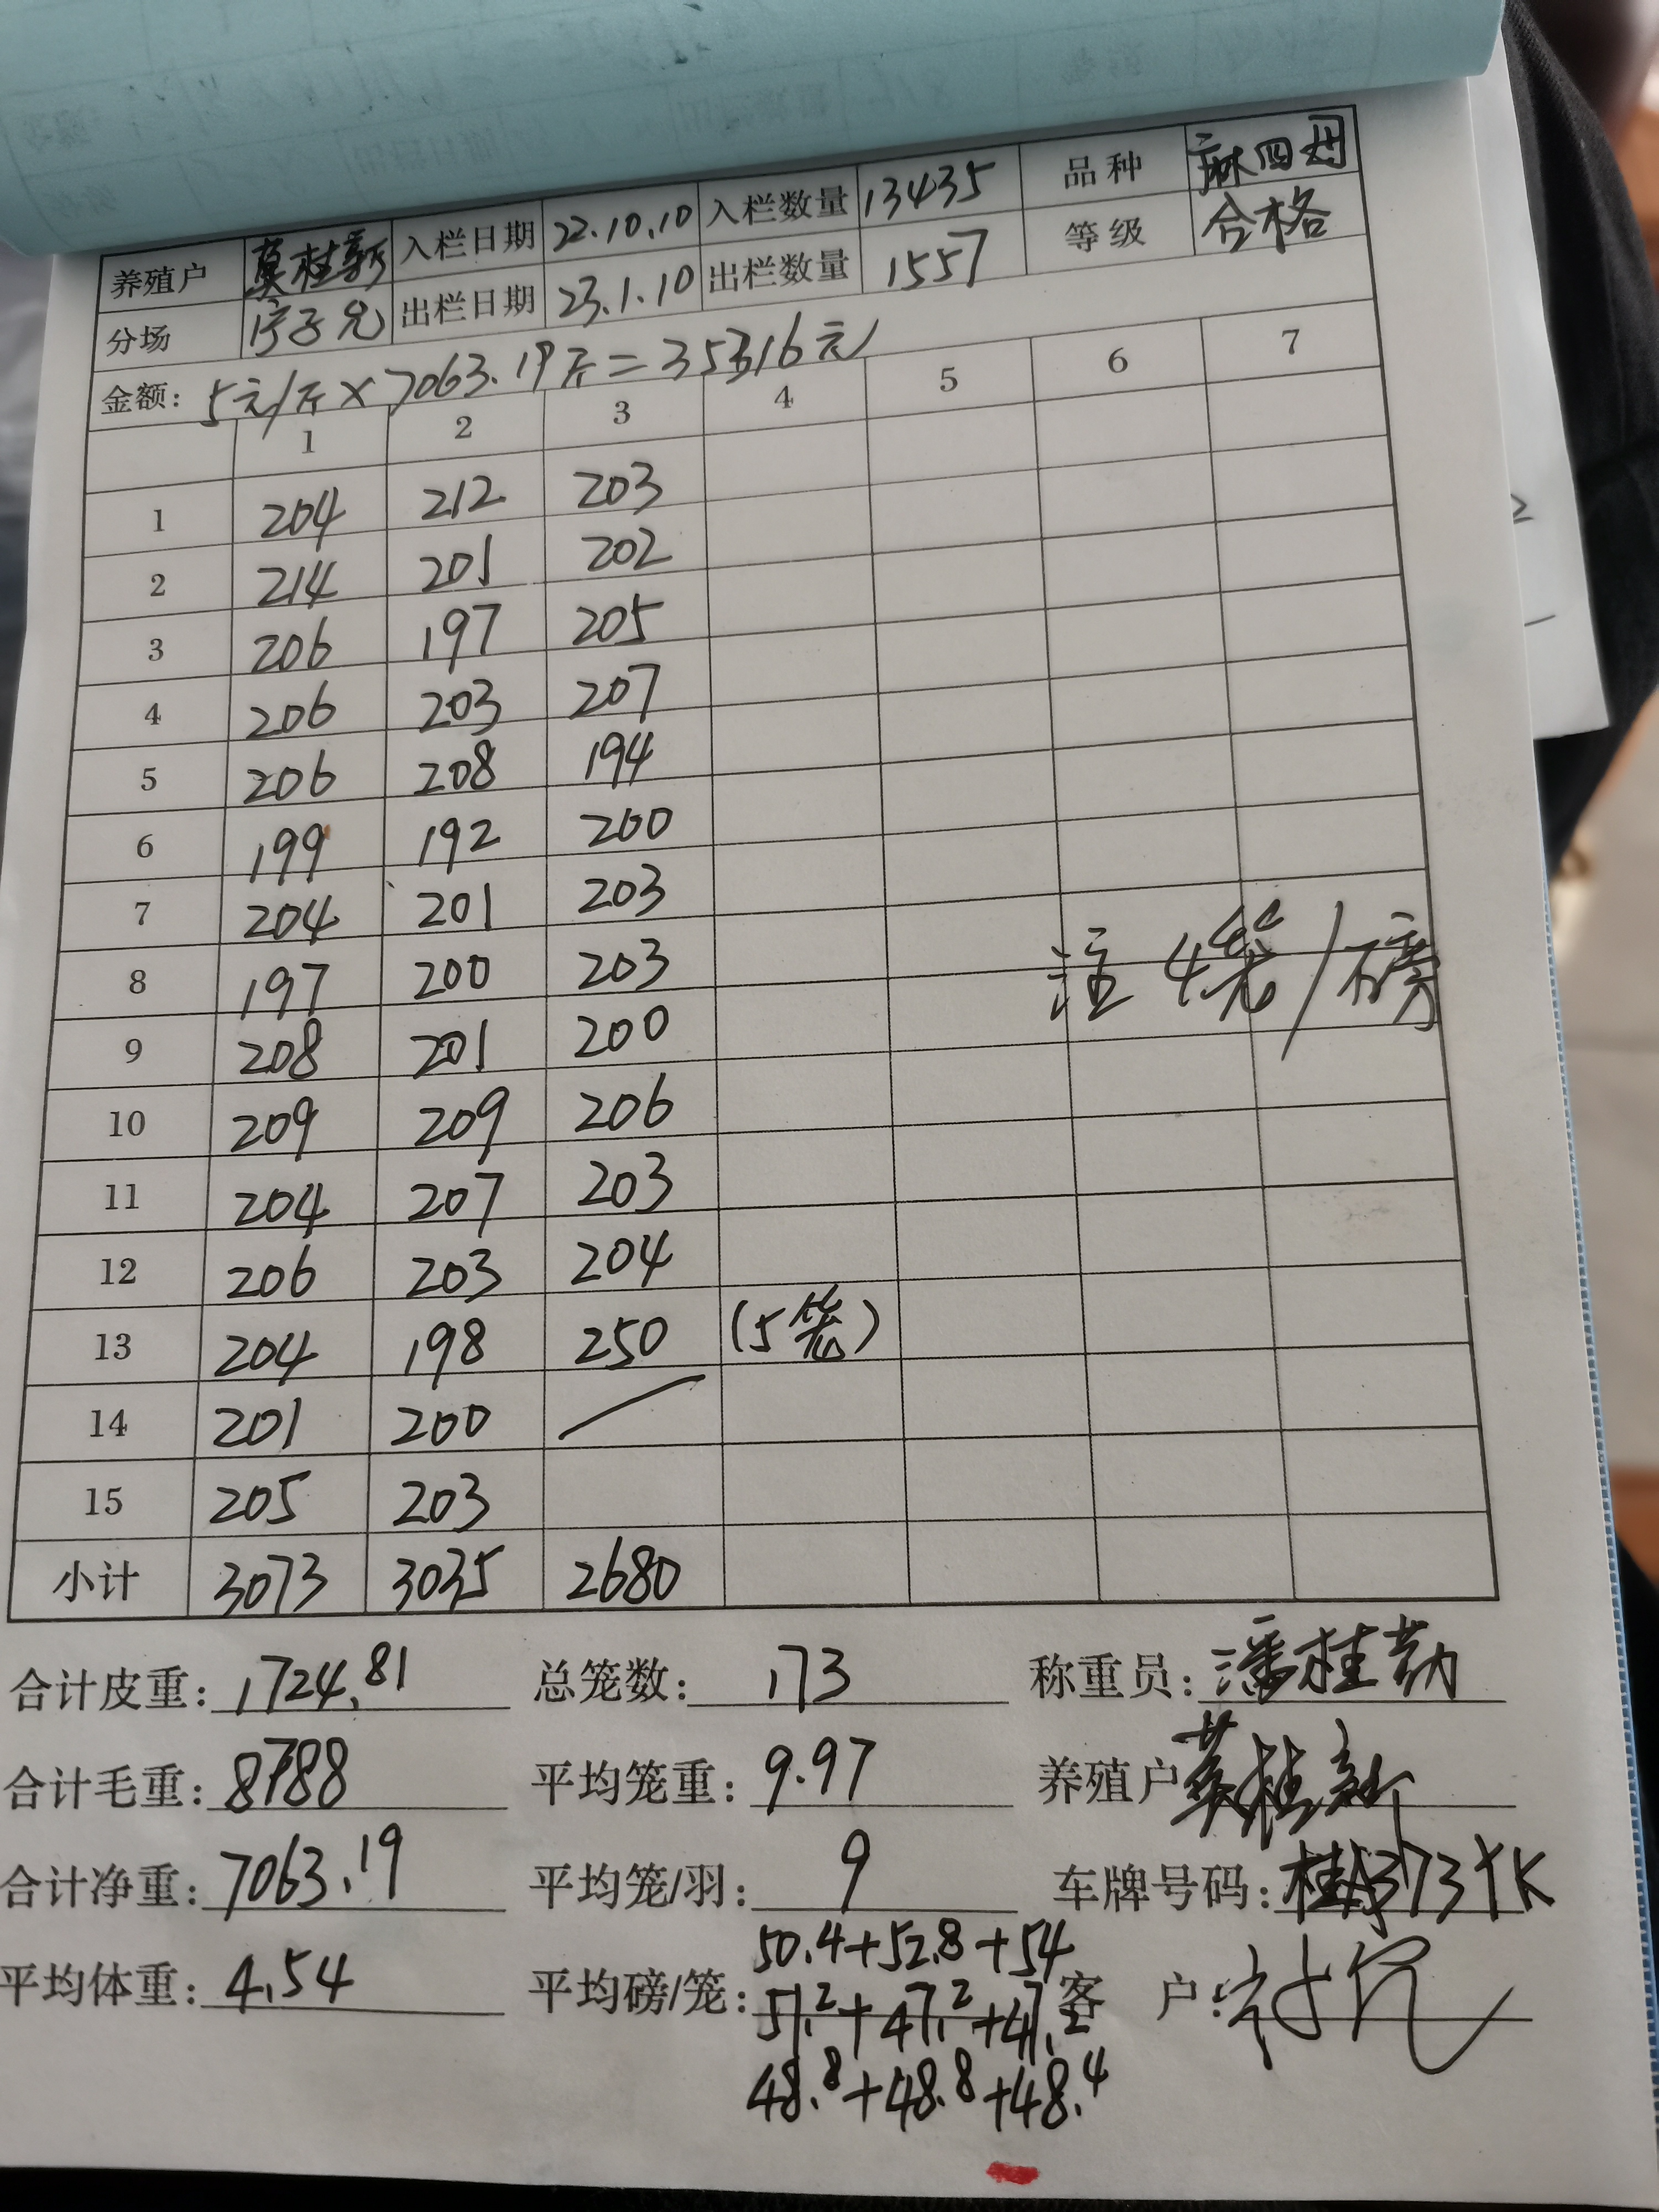 养殖户 莫桂新 入栏日期 22.10.10 入栏数量 13435 品种 麻四母
分场 出栏日期 23.1.10 出栏数量 1557 等级 合格
金额: 5元/斤 × 7063.19斤 = 35316元
1 2 3 4 5 6 7
1 204 212 203
2 214 201 202
3 206 197 205
4 206 203 207
5 206 208 194
6 199 192 200
7 204 201 203
8 197 200 203
注 4笼/磅
9 208 201 200
10 209 209 206
11 204 207 203
12 206 203 204
13 204 198 250 (5笼)
14 201 200 /
15 205 203
小计 3073 3035 2680
合计皮重: 1724.81 总笼数: 173 称重员: 潘桂勤
合计毛重: 8788 平均笼重: 9.97 养殖户 莫桂新
合计净重: 7063.19 平均笼/羽: 9 车牌号码: 桂A373YK
平均体重: 4.54 平均磅/笼: 50.4+52.8+54 客 户:
51.2+47.2+47.2
48.8+48.8+48.4